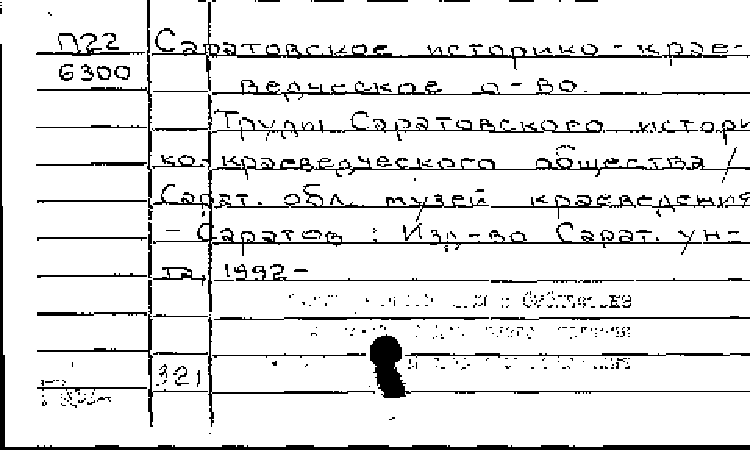 П22 Саратовское историко-крае-
6300 ведческое о-во.
Труды Саратовского истори
ко-краеведческого общества /
Сарат. обл. музей краеведения
- Саратов : Изд-во Сарат. ун-
та, 1992-
321